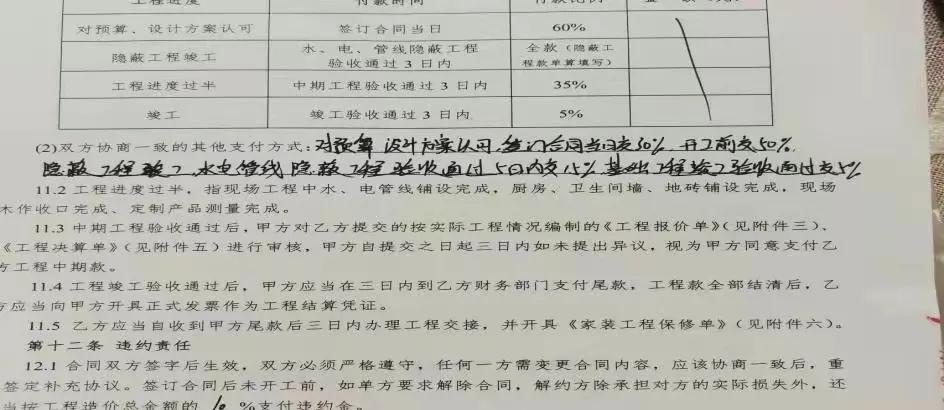 工程进度 付款时间 付款比例
对预算、设计方案认可 签订合同当日 60%
隐蔽工程竣工 水、电、管线隐蔽工程验收通过 3 日内 全款（隐蔽工程款单算填写）
工程进度过半 中期工程验收通过 3 日内 35%
竣工 竣工验收通过 3 日内 5%
(2)双方协商一致的其他支付方式:对预算 设计方案认可,签订合同当日支30%,开工前支50%,
隐蔽工程竣工,水电管线隐蔽工程验收通过5日内支15%,基础工程竣工验收通过支5%
11.2 工程进度过半，指现场工程中水、电管线铺设完成，厨房、卫生间墙、地砖铺设完成，现场
木作收口完成、定制产品测量完成。
11.3 中期工程验收通过后，甲方对乙方提交的按实际工程情况编制的《工程报价单》（见附件三）、
《工程决算单》（见附件五）进行审核，甲方自提交之日起三日内如未提出异议，视为甲方同意支付乙
方工程中期款。
11.4 工程竣工验收通过后，甲方应当在三日内到乙方财务部门支付尾款，工程款全部结清后，乙
方应当向甲方开具正式发票作为工程结算凭证。
11.5 乙方应当自收到甲方尾款后三日内办理工程交接，并开具《家装工程保修单》（见附件六）。
第十二条 违约责任
12.1 合同双方签字后生效，双方必须严格遵守，任何一方需变更合同内容，应该协商一致后，重
签定补充协议。签订合同后未开工前，如单方要求解除合同，解约方除承担对方的实际损失外，还
当按工程造价总金额的 10 %支付违约金。